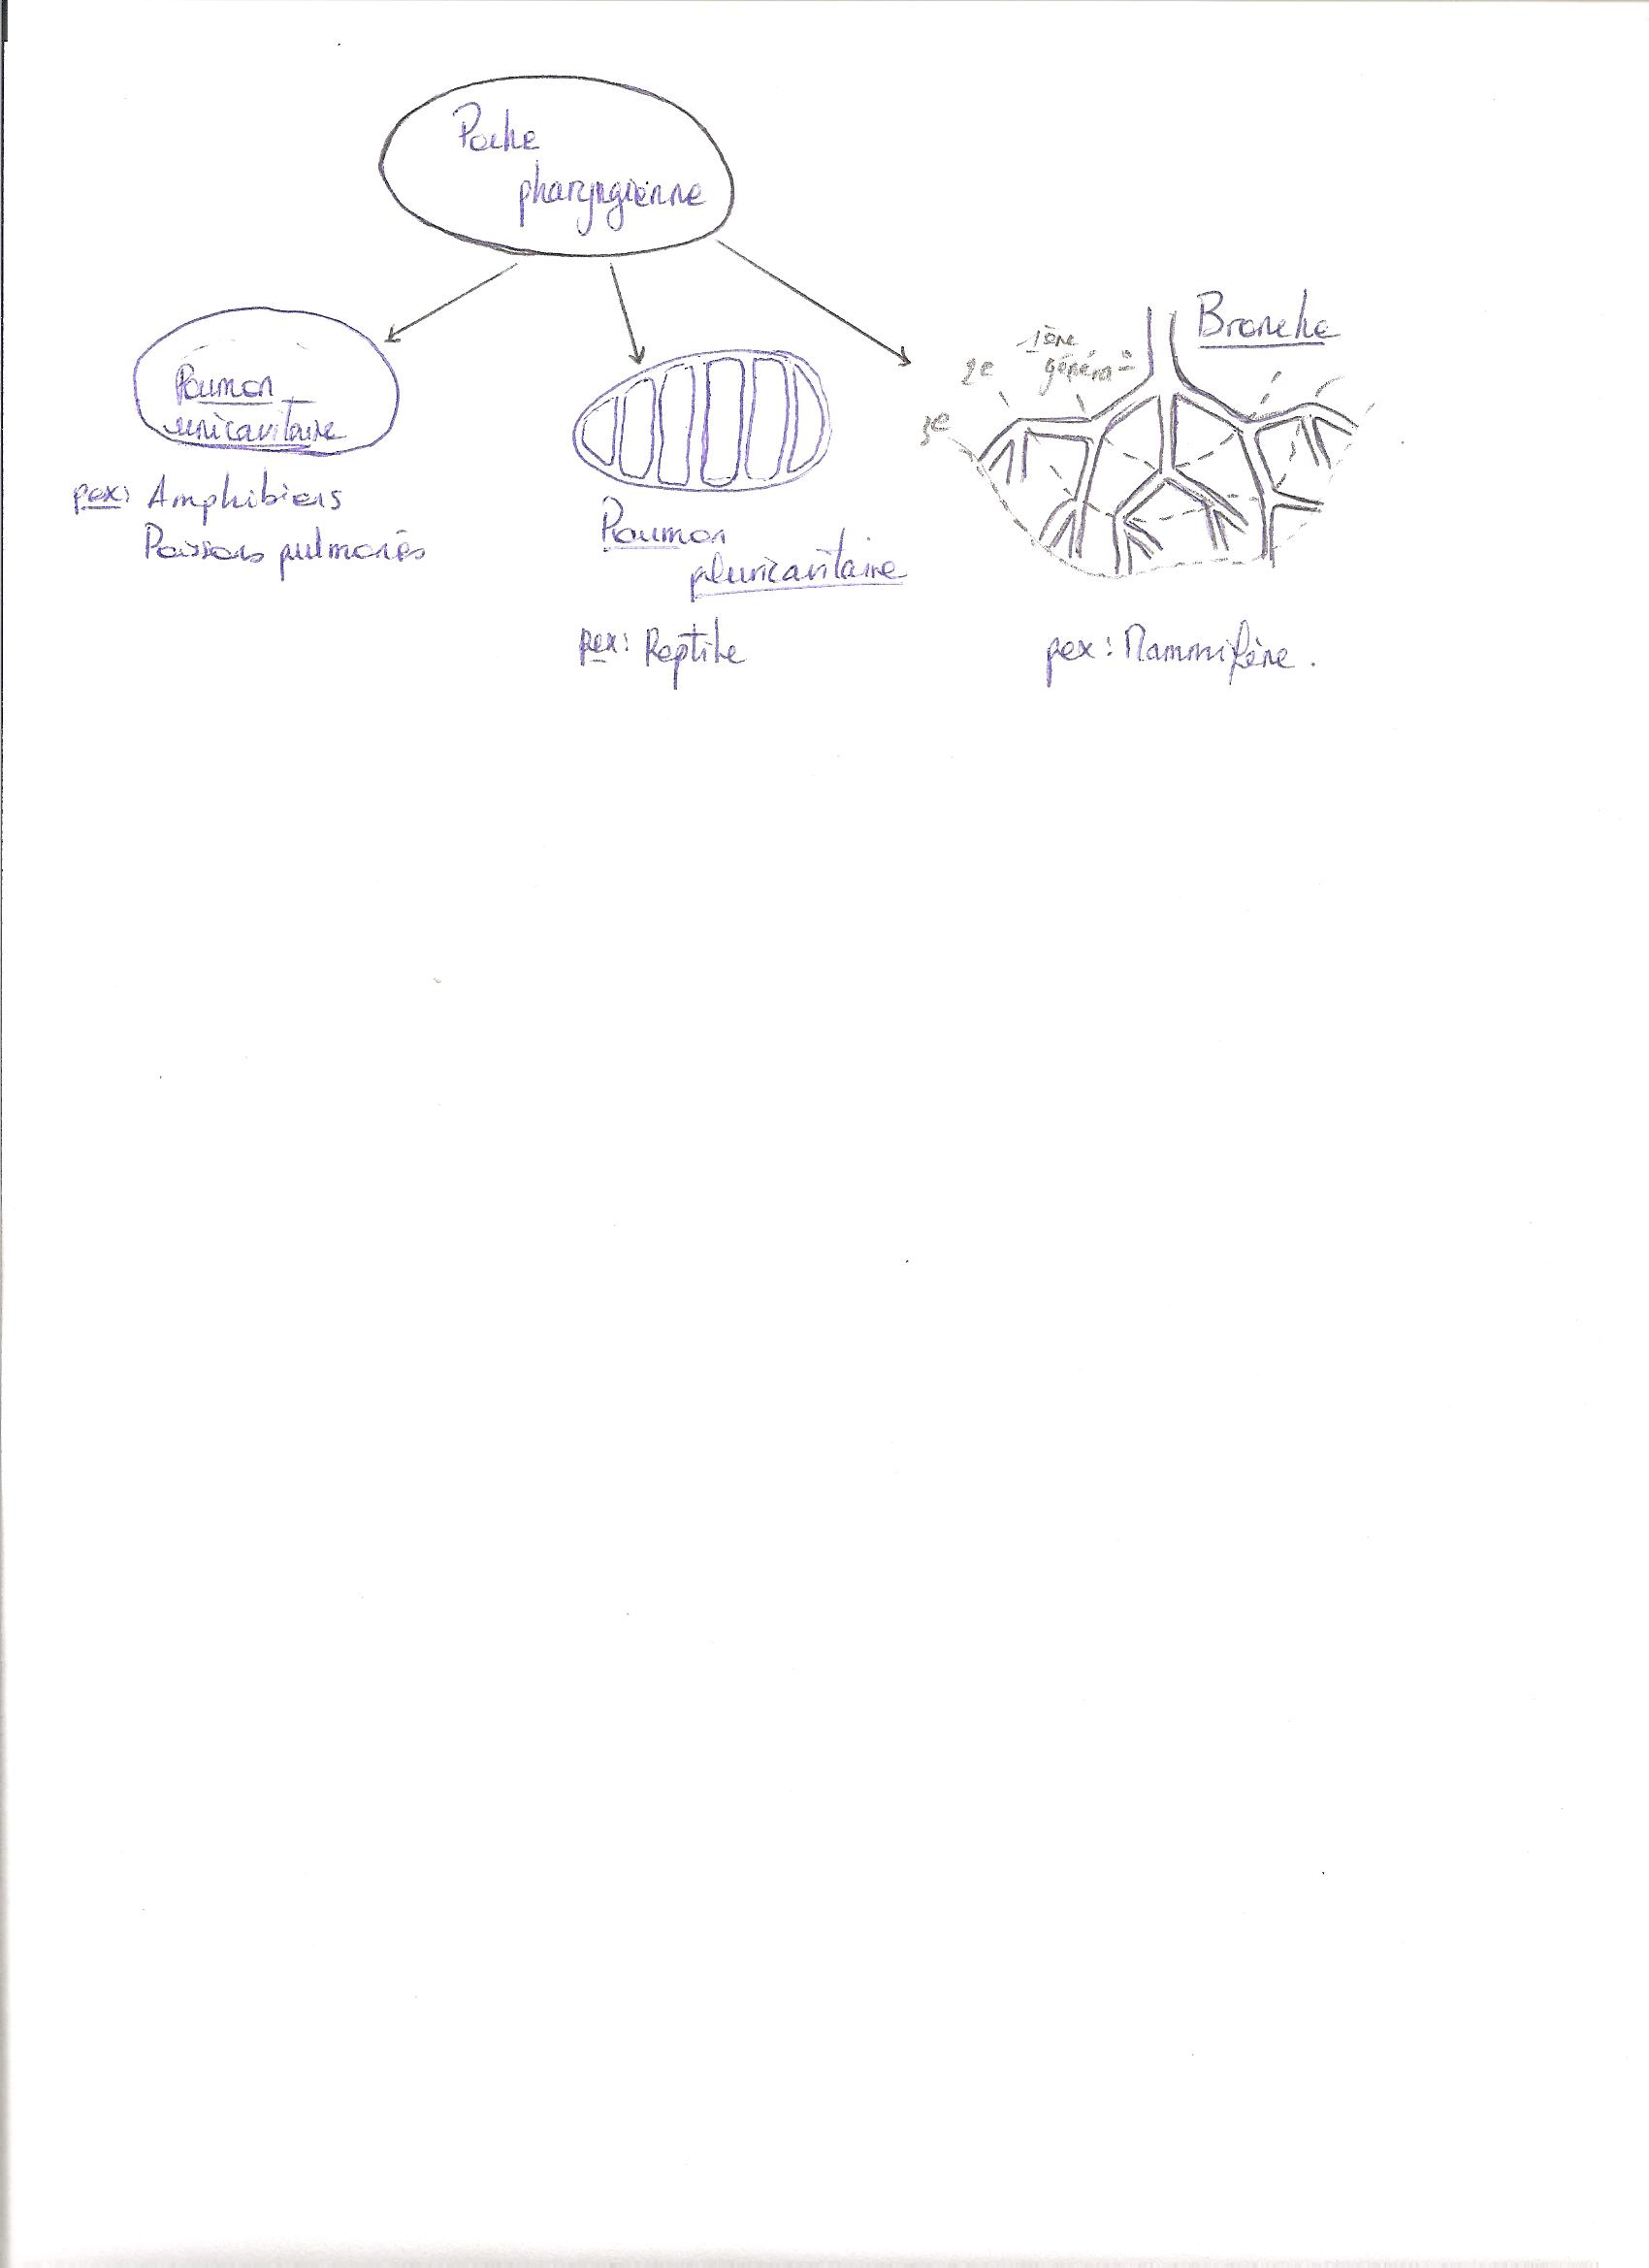 Poche
pharyngienne
Poumon
unicavitaire
pex: Amphibiens
Poissons pulmonés
Poumon
pluricavitaire
pex: Reptile
Bronche
1ère
généra°
2e
3e
pex: Mammifère.